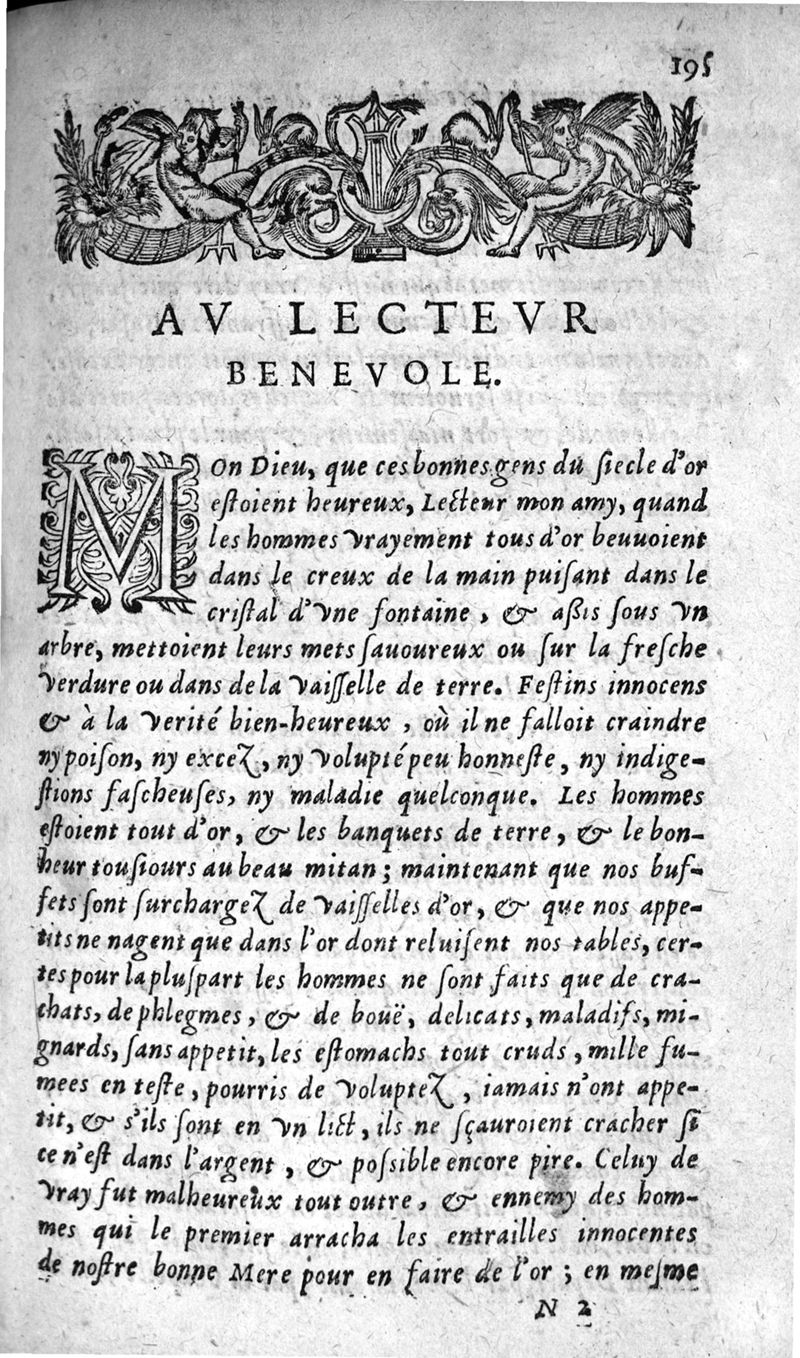 195
AV LECTEVR
BENEVOLE.
MOn Dieu, que ces bonnes gens du ſiecle d'or
eſtoient heureux, Lecteur mon amy, quand
les hommes vrayement tous d'or beuuoient
dans le creux de la main puiſant dans le
criſtal d'vne fontaine, & aßis ſous vn
arbre, mettoient leurs mets ſauoureux ou ſur la freſche
verdure ou dans de la vaiſſelle de terre. Feſtins innocens
& à la verité bien-heureux, où il ne falloit craindre
ny poiſon, ny excez, ny volupté peu honneſte, ny indige-
ſtions faſcheuſes, ny maladie quelconque. Les hommes
eſtoient tout d'or, & les banquets de terre, & le bon-
heur touſiours au beau mitan; maintenant que nos buf-
fets ſont ſurchargez de vaiſſelles d'or, & que nos appe-
tits ne nagent que dans l'or dont reluiſent nos tables, cer-
tes pour la pluſpart les hommes ne ſont faits que de cra-
chats, de phlegmes, & de bouë, delicats, maladifs, mi-
gnards, ſans appetit, les eſtomachs tout cruds, mille fu-
mees en teſte, pourris de voluptez, iamais n'ont appe-
tit, & s'ils ſont en vn lict, ils ne ſçauroient cracher ſi
ce n'eſt dans l'argent, & poſsible encore pire. Celuy de
vray fut malheureux tout outre, & ennemy des hom-
mes qui le premier arracha les entrailles innocentes
de noſtre bonne Mere pour en faire de l'or; en meſme
N 2